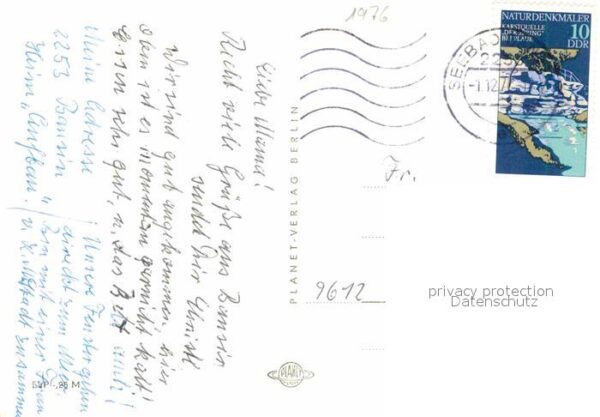 1976
Liebe Mama!
Recht viele Grüße aus Bansin
sendet Dir Christl
Wir sind gut angekommen, hier
oben ist es momentan gar nicht kalt!
Essen sehr gut, u. das Bett auch!
Meine Adresse
2253 Bansin
Heim "Aufbau"
Unsere Fenster gehen
direkt zum Meer
bin mit einer Frau
zusamme
PLANET-VERLAG BERLIN
PLANET
-,25 M
NATURDENKMÄLER
KARSTQUELLE
10
DDR
SEEBAD
225
-1.12.7
Fr.
9612
privacy protection
Datenschutz